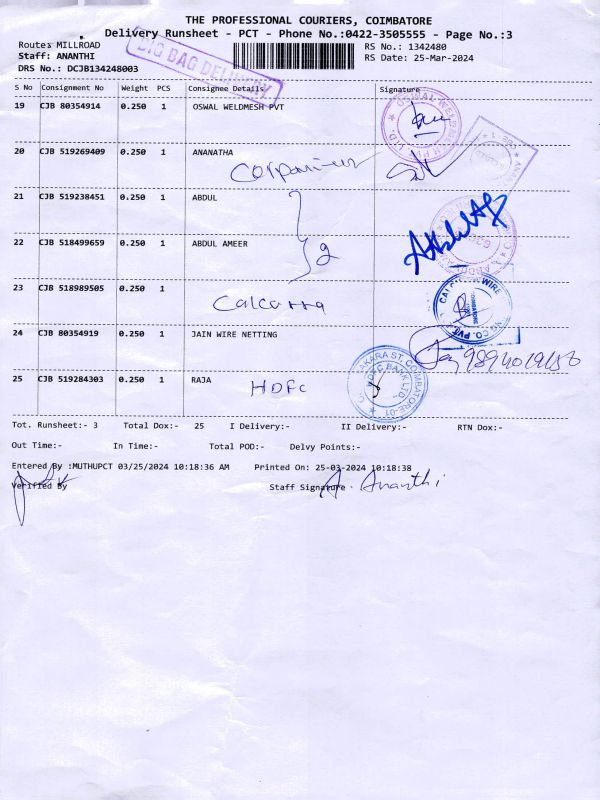 THE PROFESSIONAL COURIERS, COIMBATORE
Delivery Runsheet - PCT - Phone No.:0422-3505555 - Page No.:3
Route: MILLROAD
RS No.: 1342480
Staff: ANANTHI
RS Date: 25-Mar-2024
DRS No.: DCJB134248003
BIG BAG DELIVERY
S No Consignment No Weight PCS Consignee Details Signature
19 CJB 80354914 0.250 1 OSWAL WELDMESH PVT
20 CJB 519269409 0.250 1 ANANATHA
21 CJB 519238451 0.250 1 ABDUL
22 CJB 518499659 0.250 1 ABDUL AMEER
2
23 CJB 518989505 0.250 1
Calcatta
24 CJB 80354919 0.250 1 JAIN WIRE NETTING
25 CJB 519284303 0.250 1 RAJA
HDFC
HDFC BANK LTD.
Tot. Runsheet:- 3 Total Dox:- 25 I Delivery:- II Delivery:- RTN Dox:-
Out Time:- In Time:- Total POD:- Delvy Points:-
Entered By :MUTHUPCT 03/25/2024 10:18:36 AM Printed On: 25-03-2024 10:18:38
Verified By Staff Signature A. Ananthi